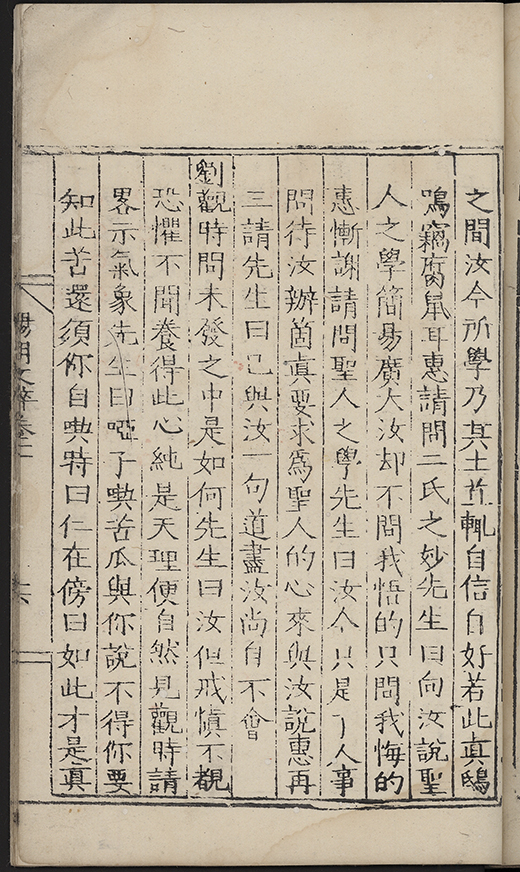 之間汝今所學乃其土苴輒自信自好若此真鴟
鴞竊腐鼠耳惠請問二氏之妙先生曰向汝說聖
人之學簡易廣大汝却不問我悟的只問我悔的
惠慚謝請問聖人之學先生曰汝今只是了人事
問待汝辦箇真要求為聖人的心來與汝說惠再
三請先生曰已與汝一句道盡汝尚自不會
劉觀時問未發之中是如何先生曰汝但戒慎不覩
恐懼不聞養得此心純是天理便自然見觀時請
畧示氣象先生曰啞子喫苦瓜與你說不得你要
知此苦還須你自喫時曰仁在傍曰如此才是真
陽明文粹卷二
六